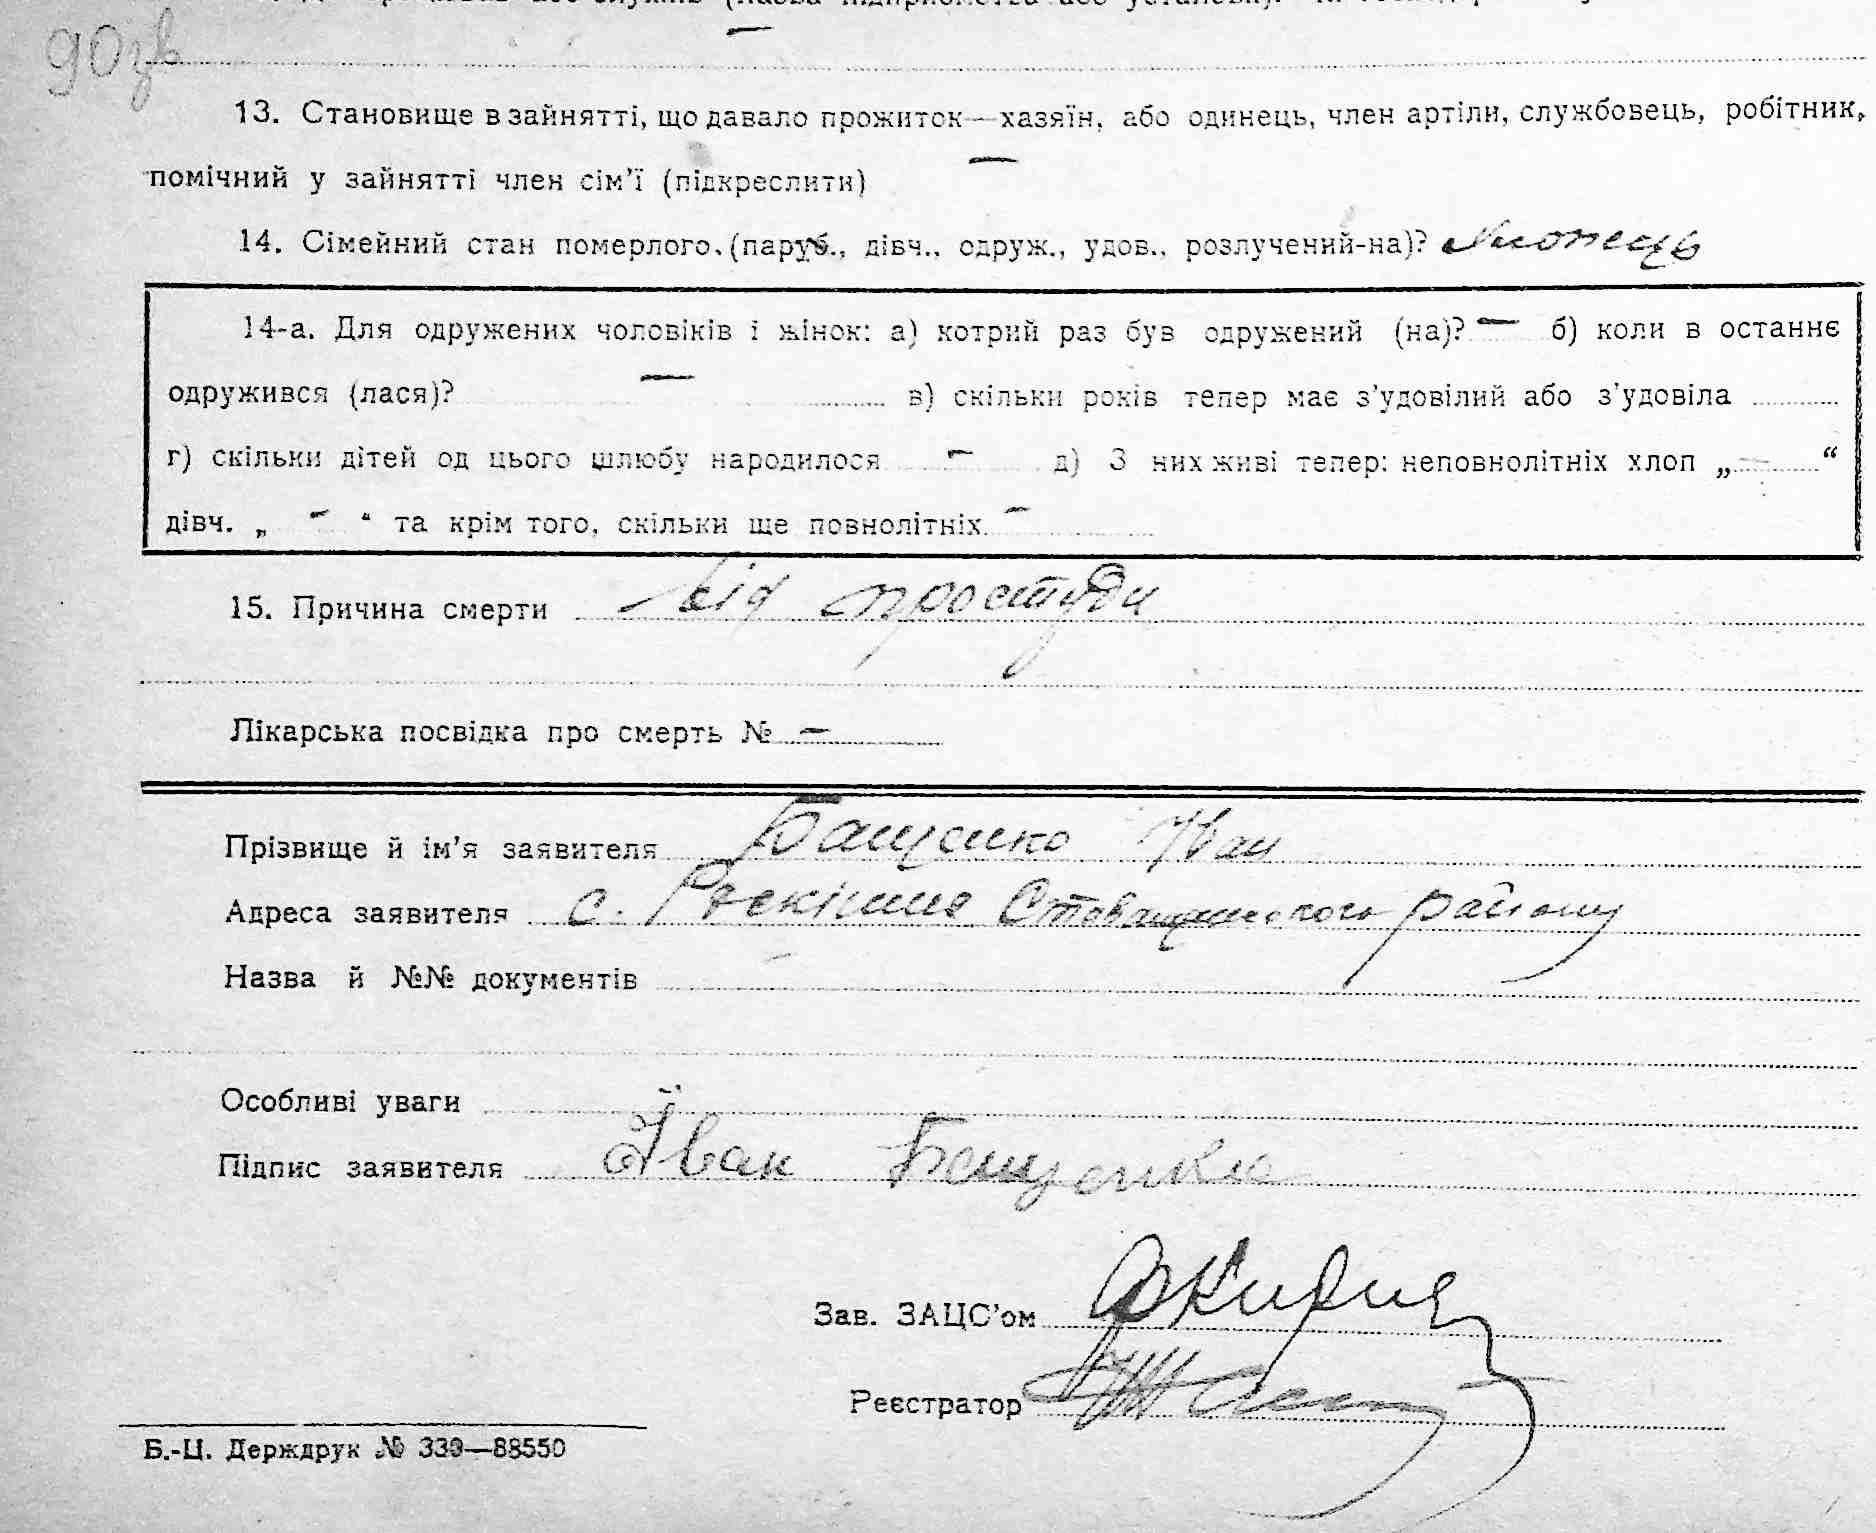 90зв
13. Становище в зайнятті, що давало прожиток—хазяїн, або одинець, член артіли, службовець, робітник,
помічний у зайнятті член сім’ї (підкреслити) —
14. Сімейний стан померлого. (паруб., дівч., одруж., удов., розлучений-на)? хлопець
14-а. Для одружених чоловіків і жінок: а) котрий раз був одружений (на)? — б) коли в останнє
одружився (лася)? — в) скільки років тепер має з’удовілий або з’удовіла
г) скільки дітей од цього шлюбу народилося — д) З них живі тепер: неповнолітніх хлоп „ — “
дівч. „ — “ та крім того, скільки ще повнолітніх —
15. Причина смерти від простуди
Лікарська посвідка про смерть № —
Прізвище й ім’я заявителя Бащенко Иван
Адреса заявителя с. Розкішна Ставищенського району
Назва й №№ документів
Особливі уваги
Підпис заявителя Їван Бащенко
Зав. ЗАЦС’ом
Реєстратор
Б.-Ц. Держдрук № 339—88550